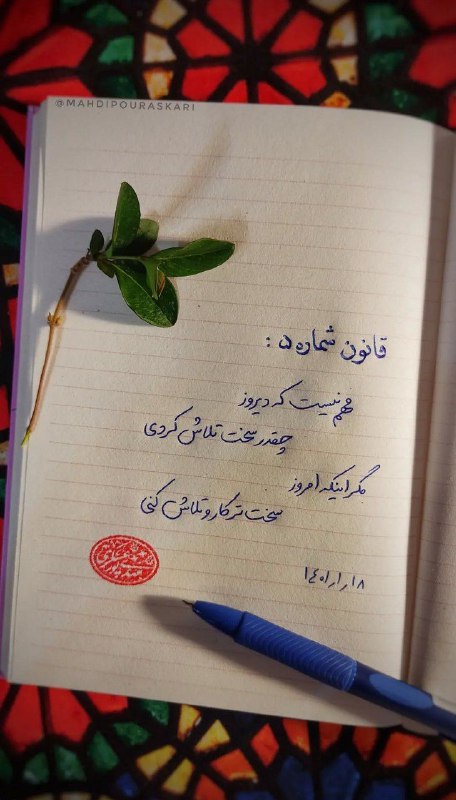 @MAHDIPOURASKARI
قانون شماره ۵ :
مهم نیست که دیروز
چقدر سخت تلاش کردی
مگر اینکه امروز
سخت تر کار و تلاش کنی
۱۴۰۱/۱/۱۸